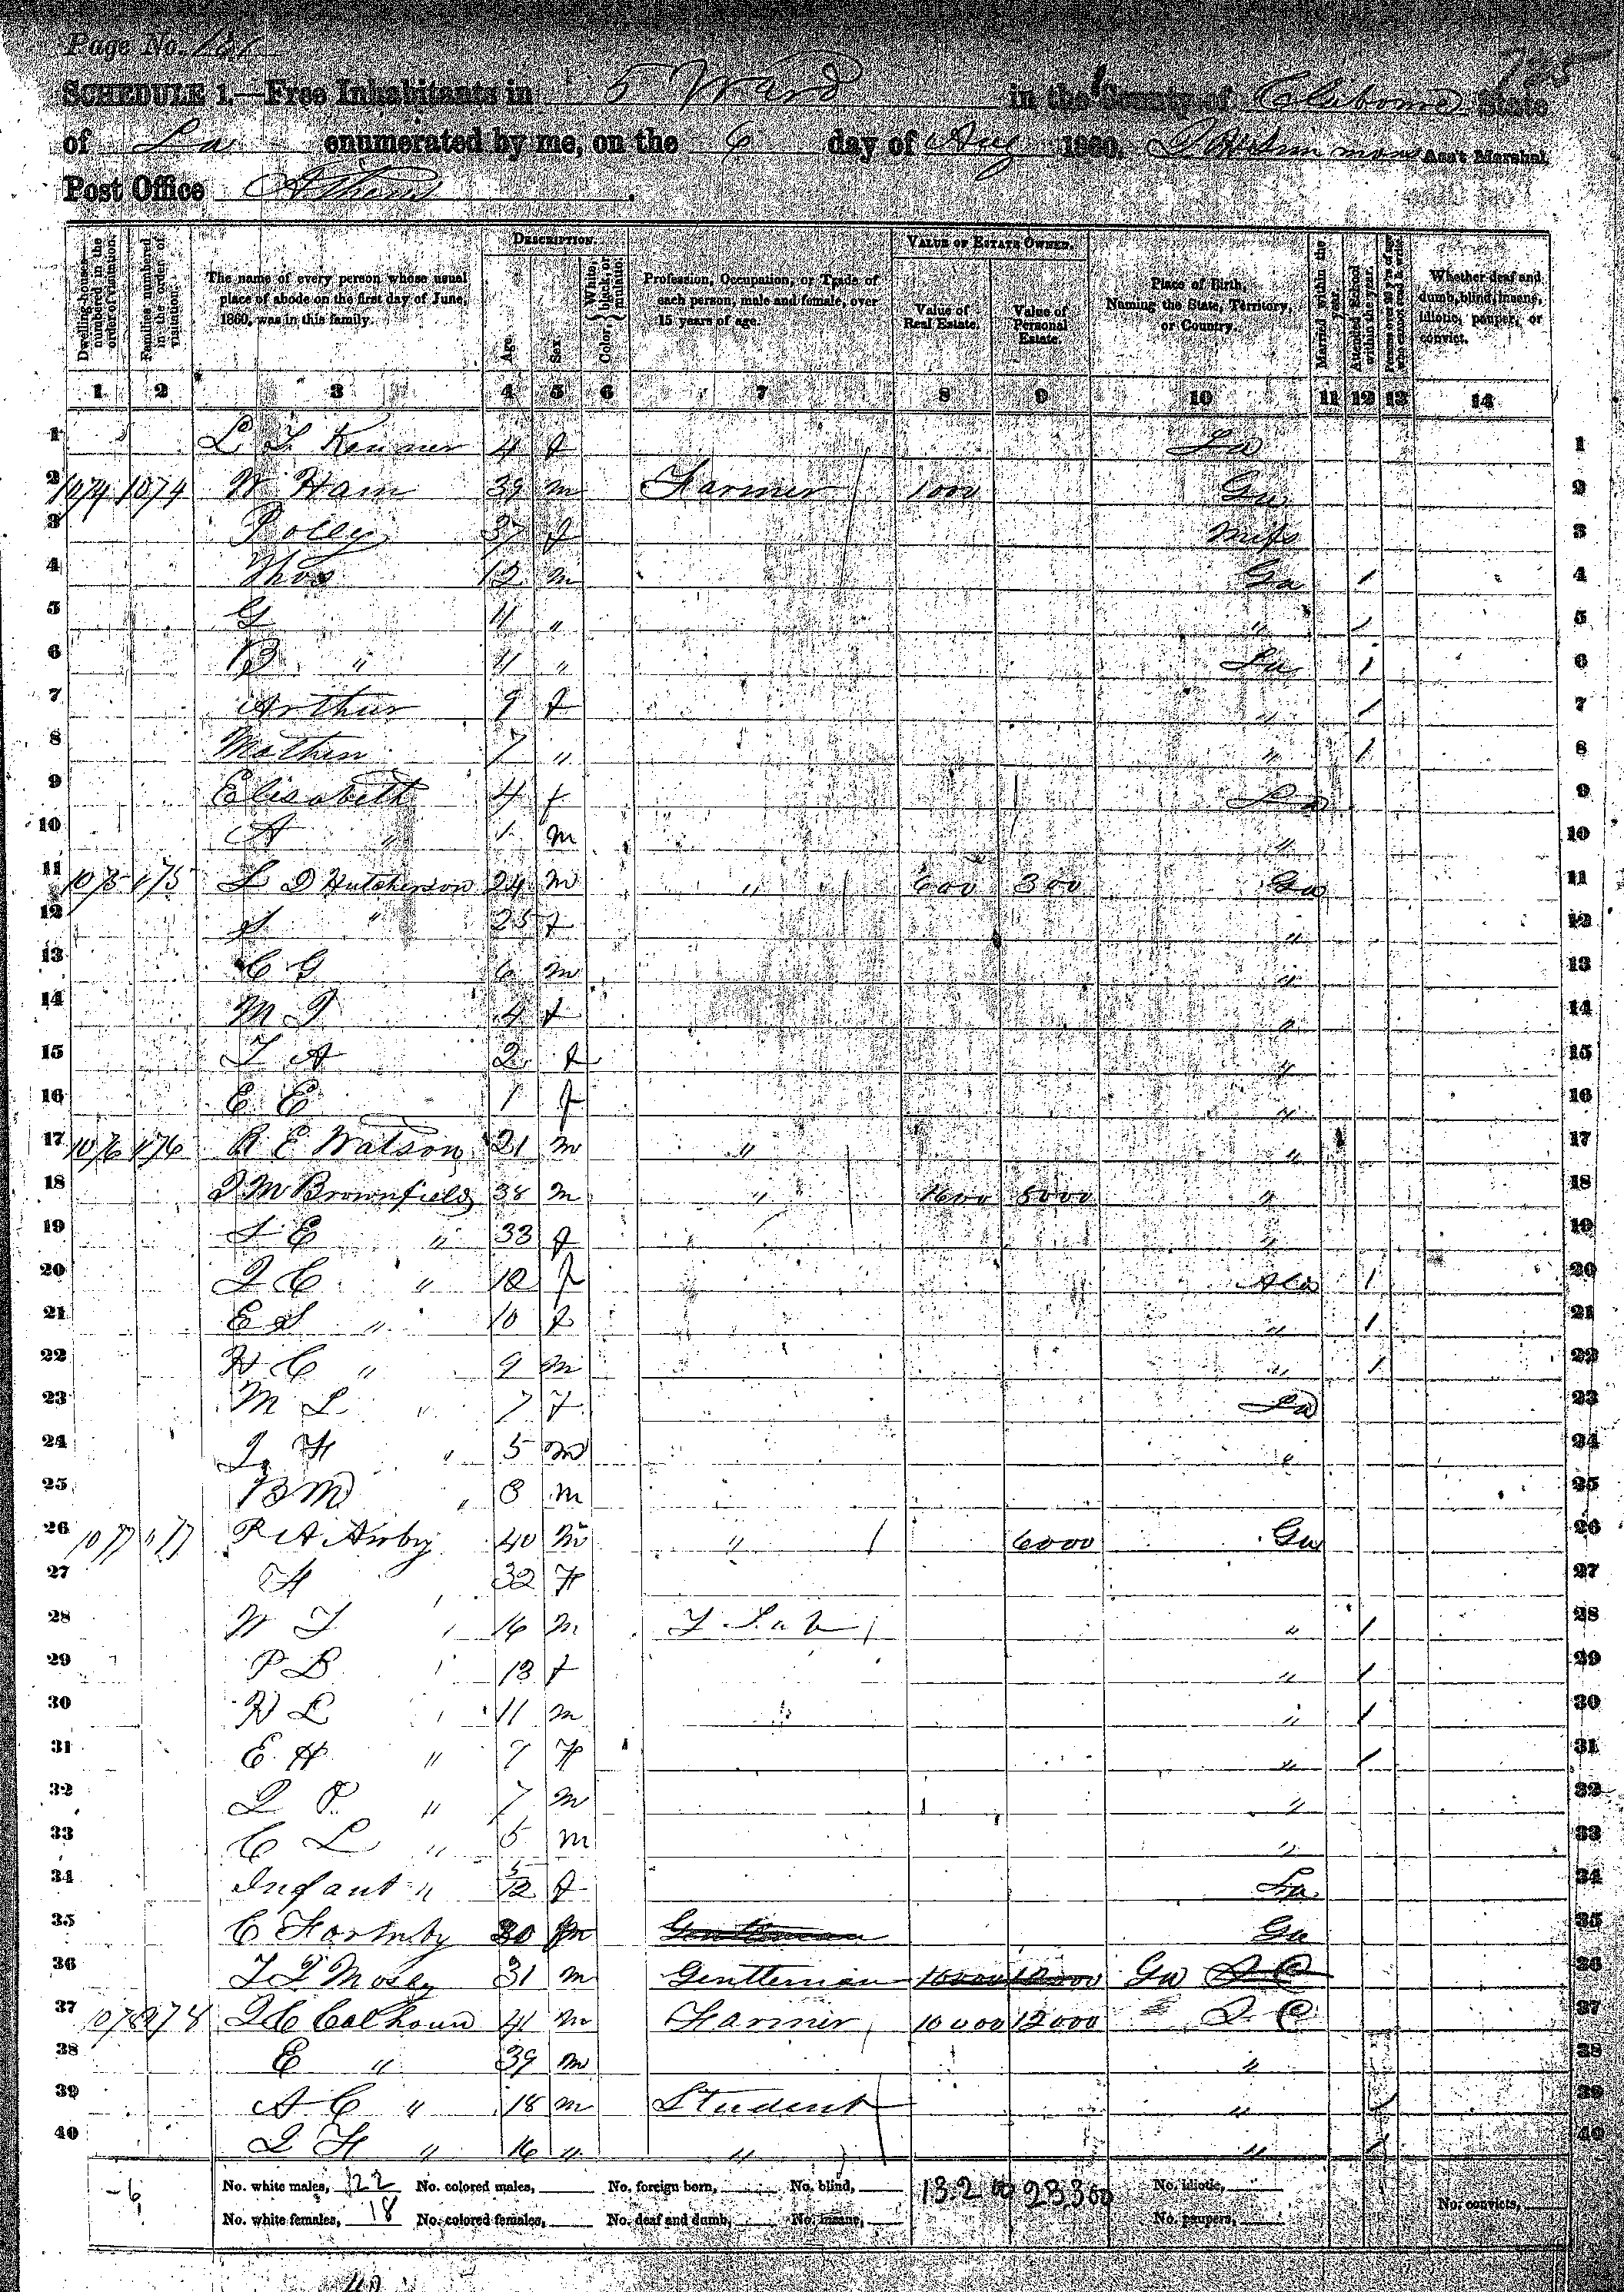 Page No. 131
725
SCHEDULE 1.—Free Inhabitants in 5 Ward in the County of Claiborne State
of La enumerated by me, on the 6 day of Aug 1860. Ass't Marshal.
Post Office Athens
Dwelling-houses— numbered in the order of visitation.
Families numbered in the order of visitation.
The name of every person whose usual place of abode on the first day of June, 1860, was in this family.
DESCRIPTION.
Age.
Sex.
Color, { White, black, or mulatto.
Profession, Occupation, or Trade of each person, male and female, over 15 years of age.
VALUE OF ESTATE OWNED.
Value of Real Estate.
Value of Personal Estate.
Place of Birth, Naming the State, Territory, or Country.
Married within the year.
Attended School within the year.
Persons over 20 y'rs of age who cannot read & write.
Whether deaf and dumb, blind, insane, idiotic, pauper, or convict.
1 2 3 4 5 6 7 8 9 10 11 12 13 14
1 L 4 f La 1
2 1074 1074 W Ham 39 m Farmer 1000 Ga 2
3 Polly 37 f Miss 3
4 Thos 12 m Ga / 4
5 G 11 " " / 5
6 B " 11 " La / 6
7 Arthur 9 f " / 7
8 7 " " / 8
9 Elisabeth 4 f La 9
10 A " 1 m " 10
11 1075 1075 L D Hutcherson 24 m " 600 300 Ga 11
12 S " 25 f " 12
13 C G 6 m " 13
14 M J 4 f " 14
15 T A 2 f " 15
16 E E 1 f " 16
17 1076 1076 R E Watson 21 m " " 17
18 J M Brownfield 38 m " 1600 5000 " 18
19 S E " 33 f " 19
20 J C " 12 f Ala / 20
21 E S " 10 f " / 21
22 H C " 9 m " / 22
23 M L " 7 F La 23
24 J F " 5 m " 24
25 B M " 3 m 25
26 1077 1077 P A 40 m " 6000 Ga 26
27 F " 32 F 27
28 W T " 16 m F Lab " / 28
29 P B " 13 f " / 29
30 H L " 11 m " / 30
31 E H " 7 F " / 31
32 J P " 7 m " 32
33 C L " 5 m " 33
34 Infant " 5/12 f La 34
35 C 30 m Gentleman Ga 35
36 T J Mosley 31 m Gentleman 10000 12000 Ga S C 36
37 1078 1078 J C Calhoun 41 m Farmer 10000 12000 S C 37
38 E " 39 m " 38
39 A C " 18 m Student " / 39
40 J F " 16 " " " / 40
-6 No. white males, 22 No. colored males, No. foreign born, No. blind, 13200 23300 No. idiotic,
No. white females, 18 No. colored females, No. deaf and dumb, No. insane, No. paupers, No. convicts,
40